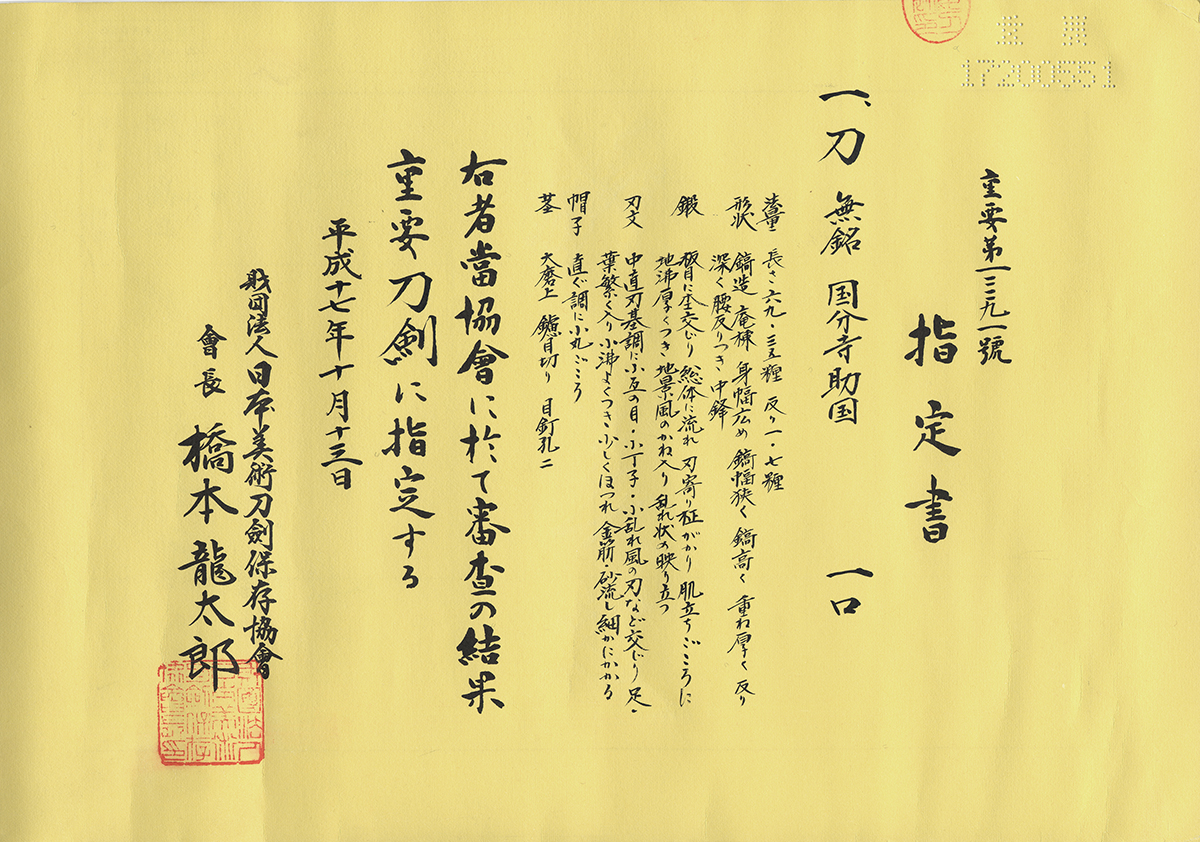 重要
17200551
重要第一二三九一號
指定書
一、刀 無銘 国分寺助国 一口
法量 長さ六九・三五糎 反り一・七糎
形状 鎬造 庵棟 身幅広め 鎬幅狭く 鎬高く 重ね厚く 反り
深く腰反りつき 中鋒
鍛 板目に杢交じり 総体に流れ 刃寄り柾がかり 肌立ちごころに
地沸厚くつき 地景風のかね入り 乱れ状の映り立つ
刃文 中直刃基調に小互の目・小丁子・小乱れ風の刃など交じり 足・
葉繁く入り 小沸よくつき 少しくほつれ 金筋・砂流し細かにかかる
帽子 直ぐ調に小丸ごころ
茎 大磨上 鑢目切り 目釘孔二
右者當協會に於て審査の結果
重要刀剣に指定する
平成十七年十月十三日
財団法人日本美術刀剣保存協會
會長 橋本龍太郎